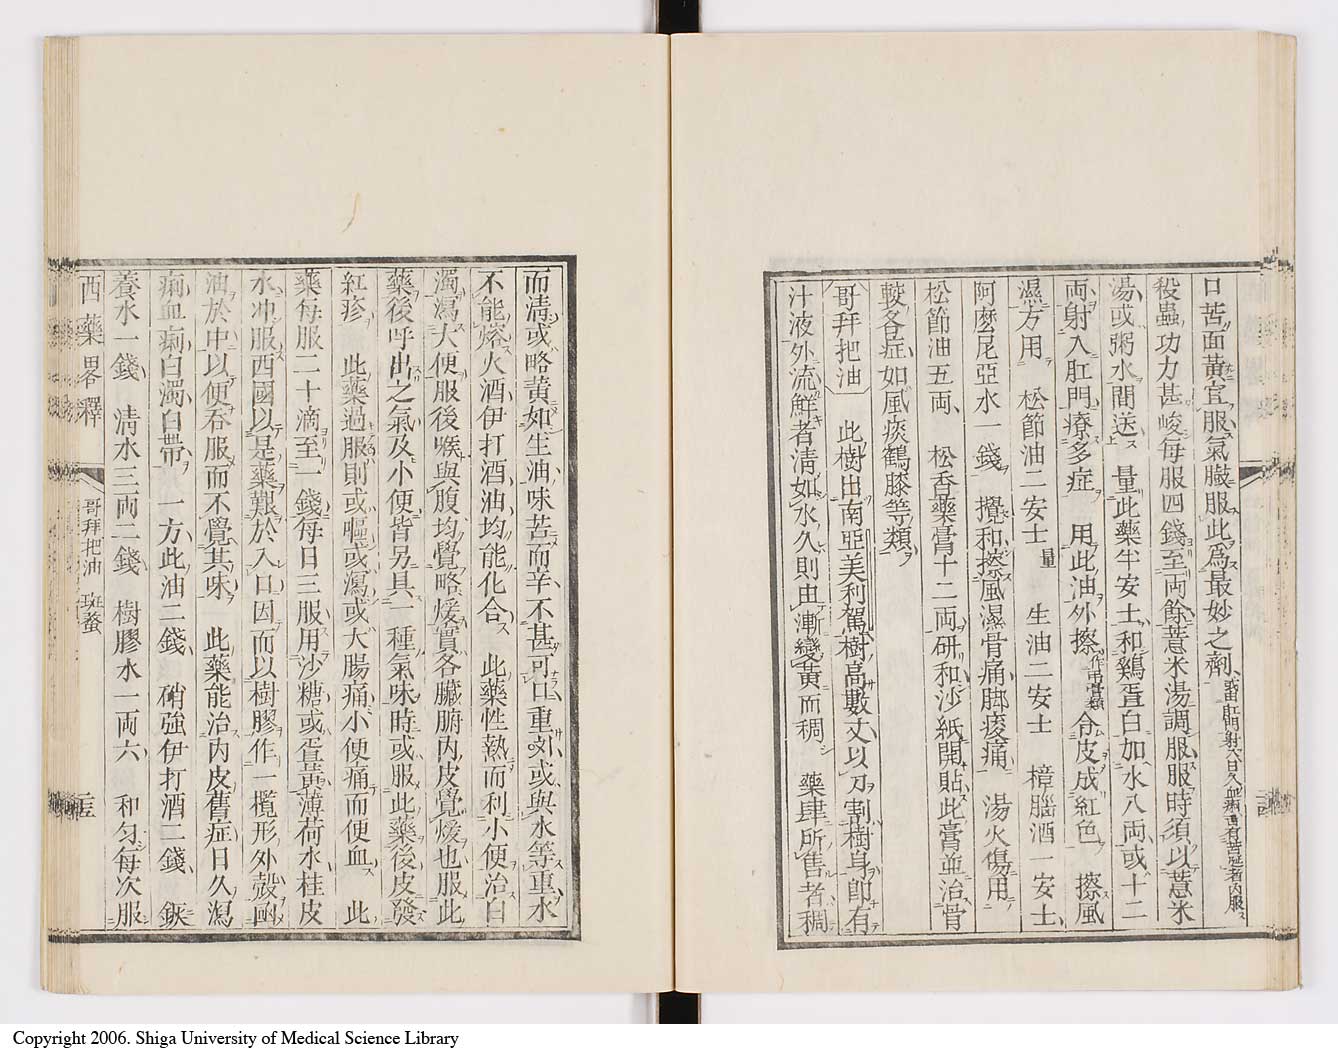 口苦面黃宜服氣臌服此爲最妙之劑
殺蟲功力甚峻每服四錢至両餘薏米湯調服服時須以薏米
湯或粥水間送 量此藥半安士和鷄蛋白加水八両或十二
両射入肛門療多症 用此油外擦 令皮成紅色 擦風
濕方用 松節油二安士量 生油二安士 樟腦酒一安士
阿麼尼亞水一錢 攪和擦風濕骨痛脚痠痛 湯火傷用
松節油五両 松香藥膏十二両研和沙紙開貼此膏並治骨
較各症如風痰鶴膝等類
哥拜把油 此樹出南亞美利駕樹高數丈以刀割樹身卽有
汁液外流鮮者淸如水久則由漸變黃而稠 藥肆所售者稠
而淸或略黃如生油味苦而辛不甚可口重刅或與水等重水
不能熔火酒伊打酒油均能化合 此藥性熱而利小便治白
濁瀉大便服後喉與腹均覺略煖實各臟腑內皮覺煖也服此
藥後呼出之氣及小便皆另具一種氣味時或服此藥後皮發
紅疹 此藥過服則或嘔或瀉或大腸痛小便痛而便血 此
藥每服二十滴至一錢每日三服用沙糖或蛋黃薄荷水桂皮
水冲服西國以是藥艱於入口因而以樹膠作一欖形外殼凾
油於中以便吞服而不覺其味 此藥能治內皮舊症日久瀉
痢血痢白濁白帶 一方此油二錢 硝強伊打酒二錢 鋉
養水一錢 淸水三両二錢 樹膠水一両六 和匀每次服
西藥畧釋 哥拜把油 斑蝥 二五
Copyright 2006. Shiga University of Medical Science Library